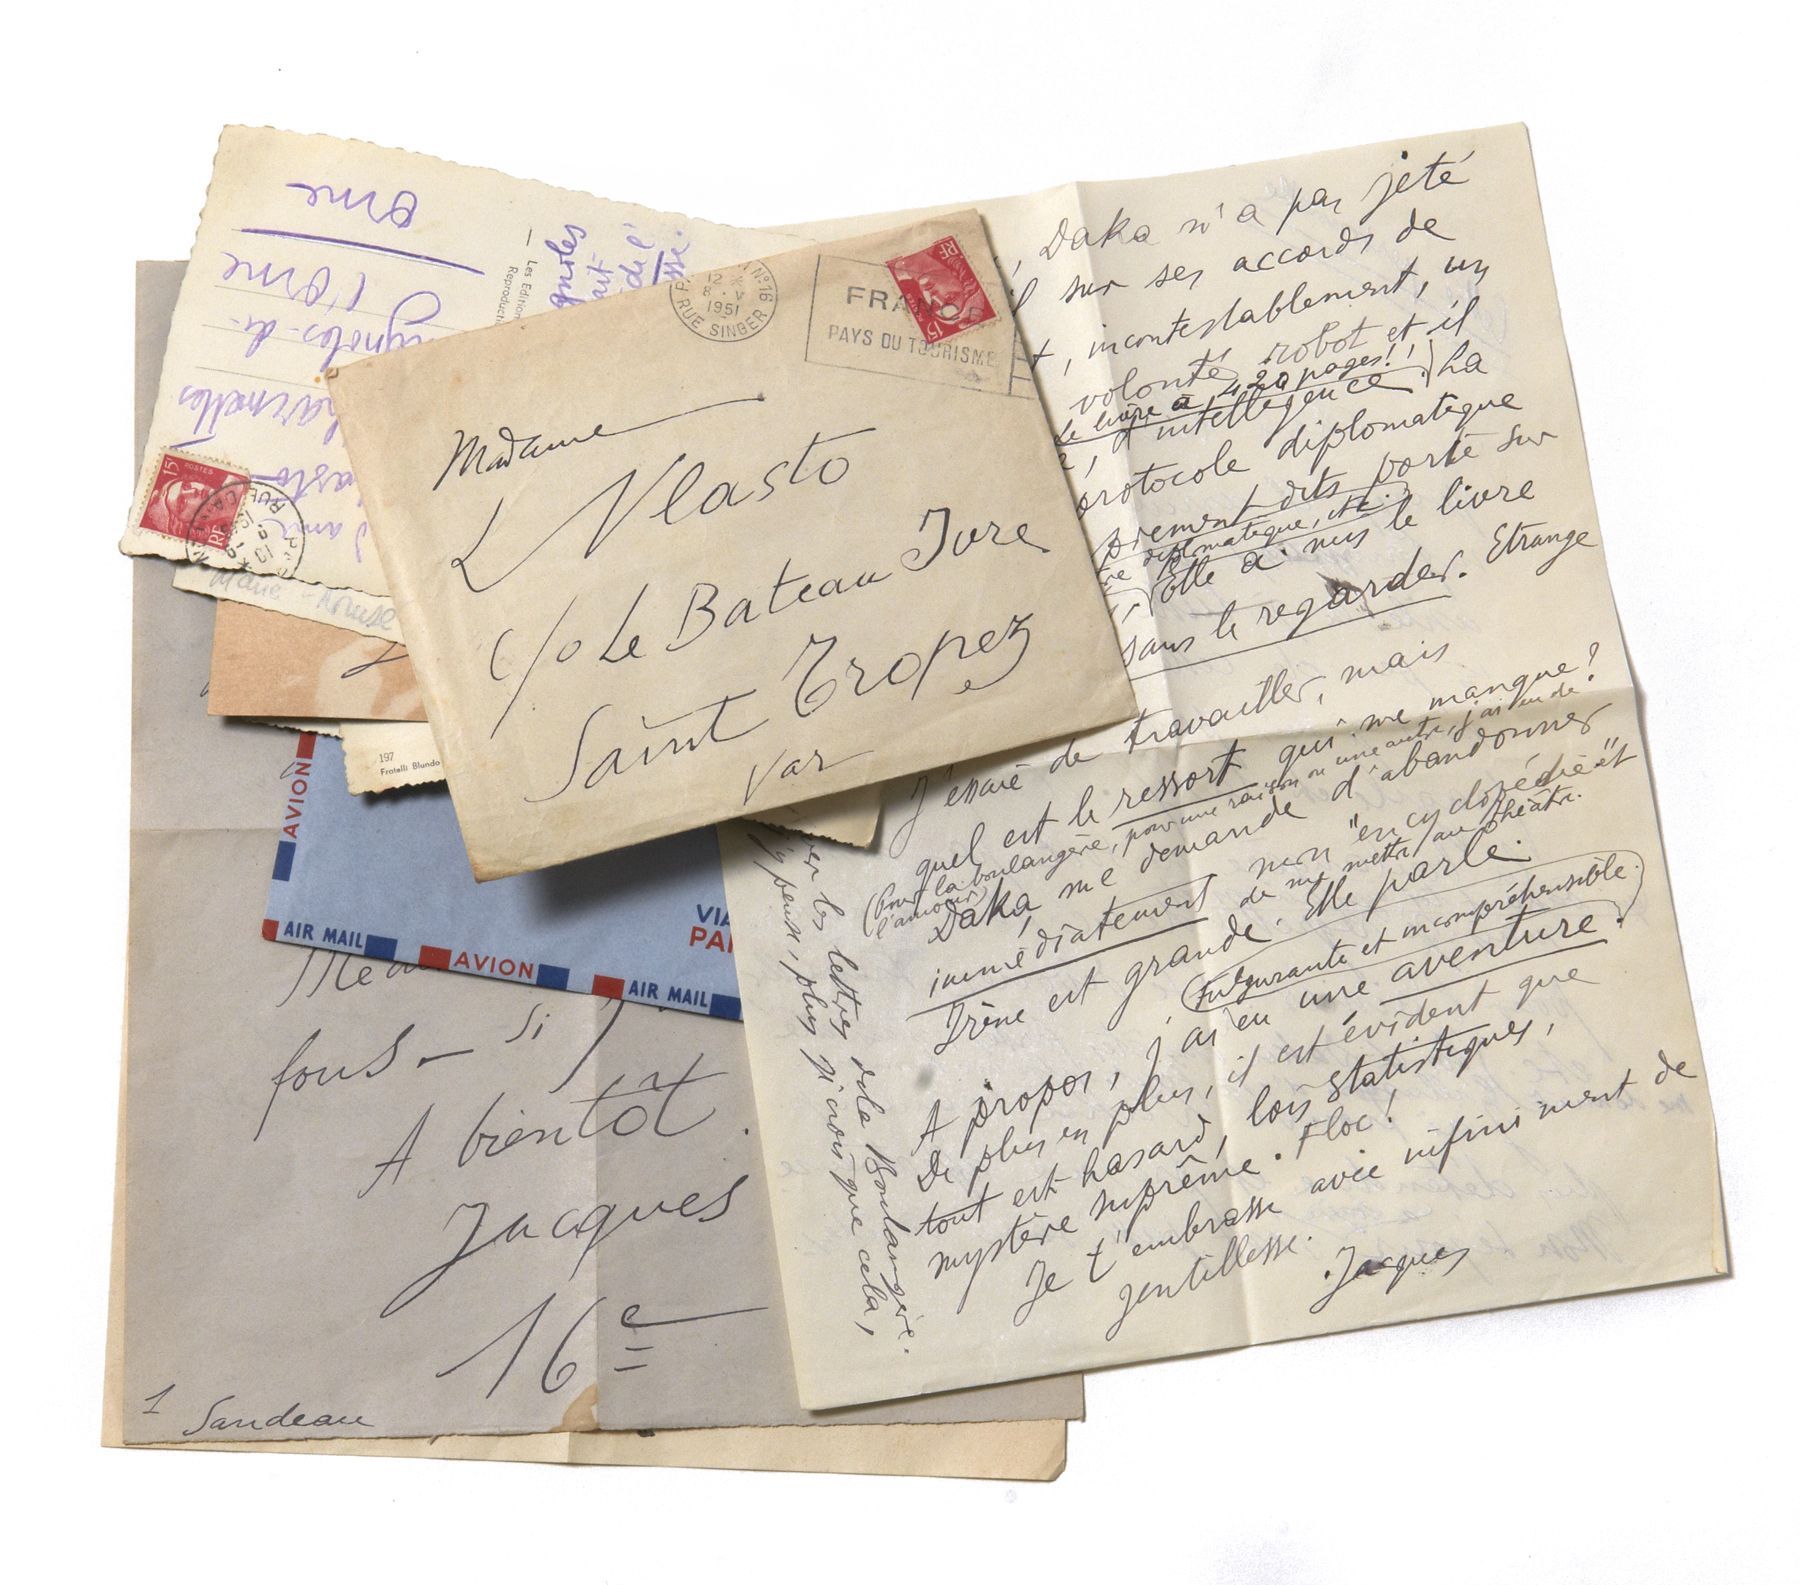 Orne
l'Orne
Les Edition
Reproducti
15f POSTES RF
197
Fratelli Blundo
PARIS N°16
12
8 - V
1951
RUE SINGER
FRANCE
PAYS DU TOURISME
RF
15f
Madame
L Vlasto
c/o Le Bateau Ivre
Saint Tropez
Var
AVION
AIR MAIL
AVION
AIR MAIL
VIA
PA
fous — Si j
A bientôt.
Jacques
16e
1 Sandeau
Daka n'a pas jeté
sur ses accords de
, incontestablement, un
volonté, robot et il
Le livre a 420 pages!!
, d'intelligence. La
protocole diplomatique
prement dits porte sur
diplomatique, etc.
Elle a mis le livre
sans le regarder. Etrange
J'essaie de travailler, mais
quel est le ressort qui me manque?
(Pour la boulangère, pour une raison ou une autre, j'ai eu de
l'amour)
Daka, me demande d'abandonner
immédiatement mon "encyclopédie" et
de me mettre au théâtre.
Irène est grande. Elle parle.
(Fulgurante et incompréhensible.)
A propos, j'ai eu une aventure.
De plus en plus, il est évident que
tout est hasard, lois statistiques,
mystère suprême. Floc!
Je t'embrasse avec infiniment de
gentillesse.
Jacques
les lettres de la Boulangère.
j'y pense, plus j'y crois que cela,